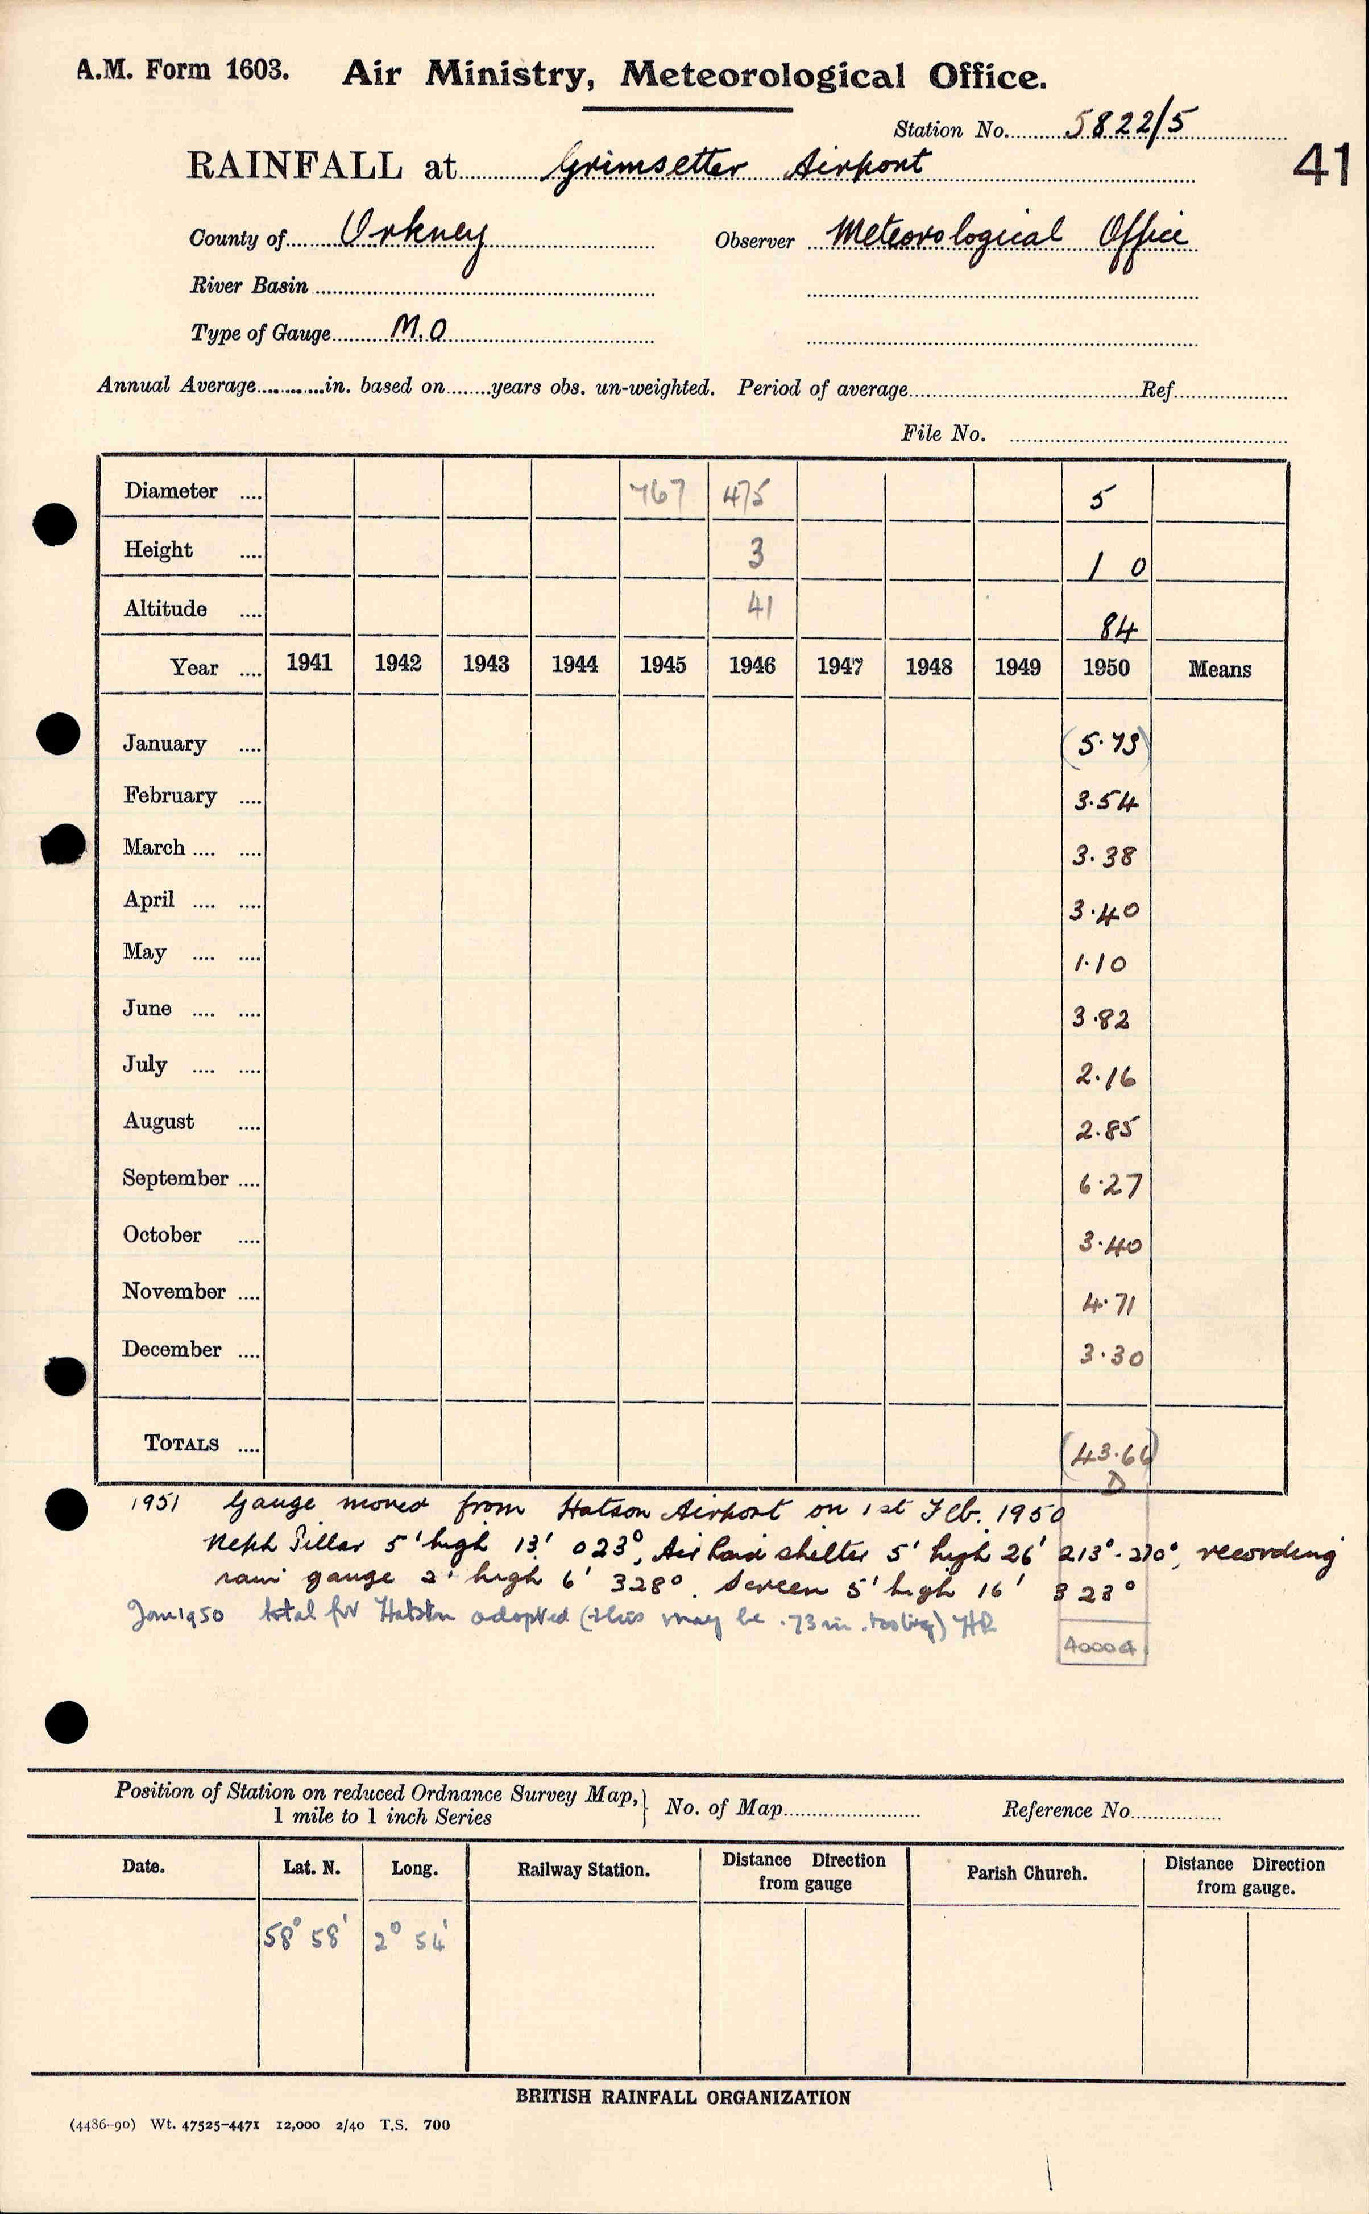 A.M. Form 1603. Air Ministry, Meteorological Office.
Station No. 5822/5
41
RAINFALL at Grimsetter Airport
County of Orkney Observer Meteorological Office
River Basin
Type of Gauge M.O
Annual Average in. based on years obs. un-weighted. Period of average Ref
File No.
Diameter .... 767 475 5
Height .... 3 1 0
Altitude .... 41 84
Year .... 1941 1942 1943 1944 1945 1946 1947 1948 1949 1950 Means
January .... (5.73)
February .... 3.54
March .... .... 3.38
April .... .... 3.40
May .... .... 1.10
June .... .... 3.82
July .... .... 2.16
August .... 2.85
September .... 6.27
October .... 3.40
November .... 4.71
December .... 3.30
TOTALS .... (43.66)
D
1951 Gauge moved from Hatson Airport on 1st Feb. 1950
Neph Pillar 5' high 13' 023°, Air Raid shelter 5' high 26' 213°-270°, recording
rain gauge 2' high 6' 328°. Screen 5' high 16' 323°
Jan 1950 total for Hatston adopted (this may be .73 in. too big) HR
40004
Position of Station on reduced Ordnance Survey Map, } No. of Map Reference No.
1 mile to 1 inch Series
Date. Lat. N. Long. Railway Station. Distance Direction from gauge Parish Church. Distance Direction from gauge.
58° 58' 2° 54'
BRITISH RAINFALL ORGANIZATION
(4486-90) Wt. 47525-4471 12,000 2/40 T.S. 700